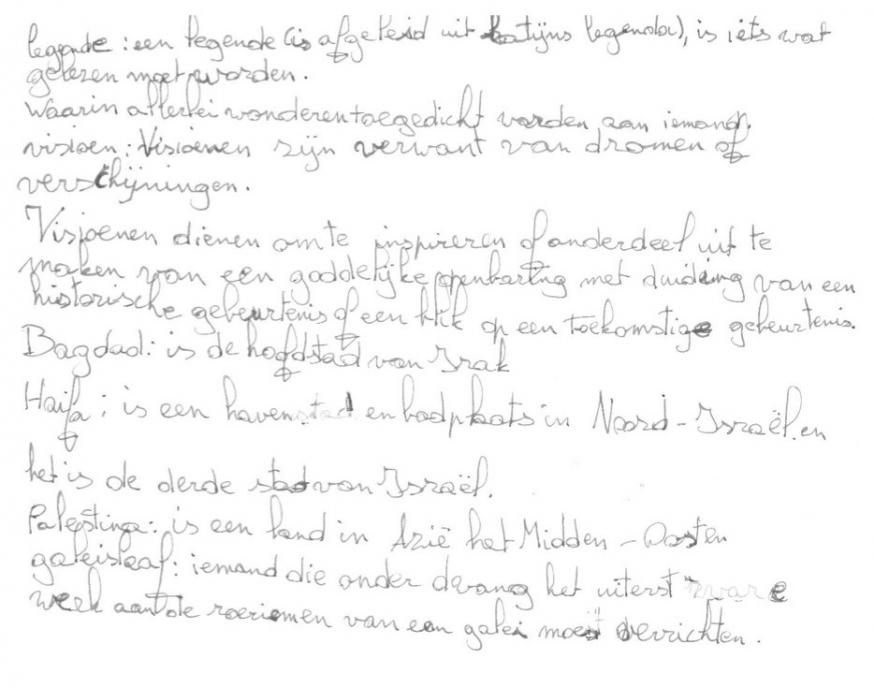 legende : een legende (is afgeleid uit Latijns legenda), is iets wat
gelezen moet worden.
Waarin allerlei wonderen toegedicht worden aan iemand.
visioen : Visioenen zijn verwant van dromen of
verschijningen.
Visjoenen dienen om te inspireren of onderdeel uit te
maken van een goddelijke openbaring met duiding van een
historische gebeurtenis of een blik op een toekomstige gebeurtenis.
Bagdad : is de hoofdstad van Irak
Haifa : is een havenstad en badplaats in Noord-Israël. en
het is de derde stad van Israël.
Palestina : is een land in Azië het Midden-Oosten
galeislaaf : iemand die onder dwang het uiterst zware
werk aan de roeriemen van een galei moest verrichten.